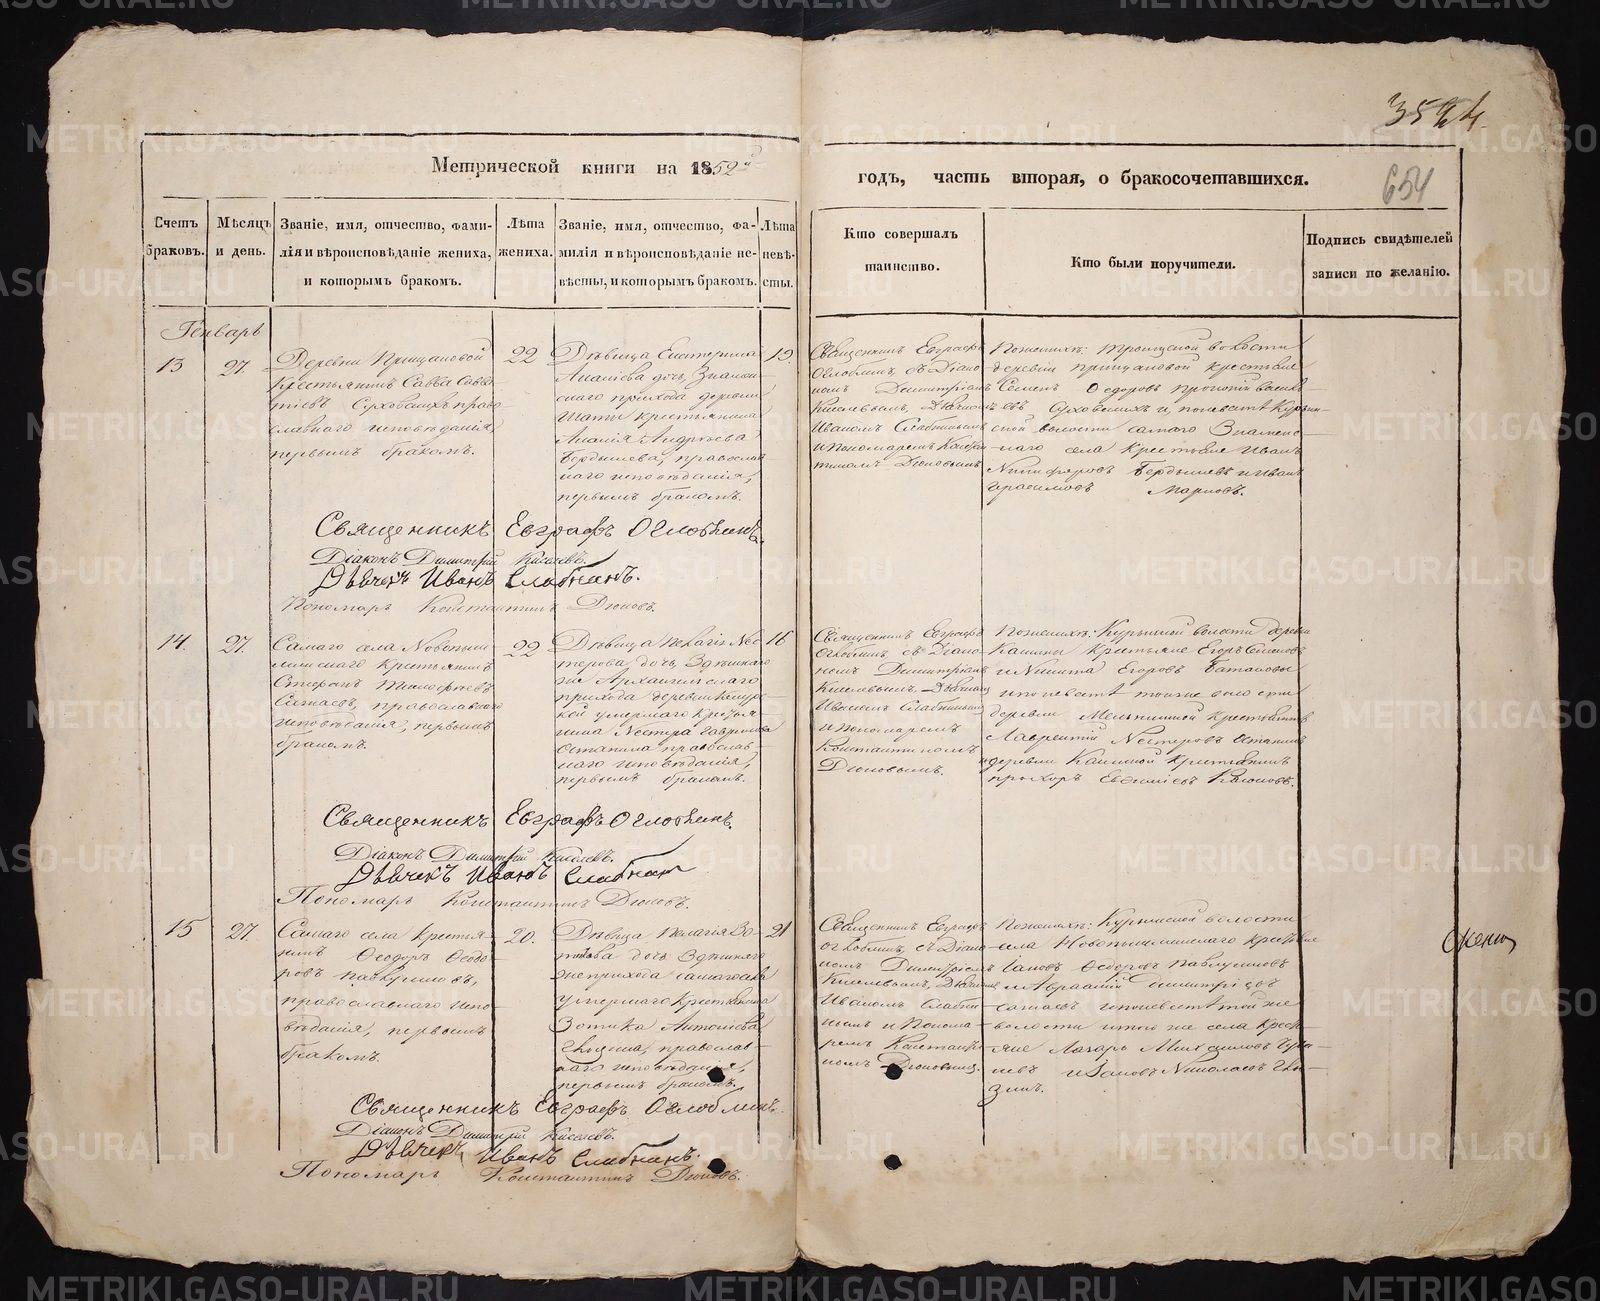 3524
654
Метрической книги на 1852й
годъ, часть вторая, о бракосочетавшихся.
Счетъ браковъ.
Мѣсяцъ и день.
Званіе, имя, отчество, фами-
лія и вѣроисповѣданіе жениха,
и которымъ бракомъ.
Лѣта жениха.
Званіе, имя, отчество, фа-
милія и вѣроисповѣданіе не-
вѣсты, и которымъ бракомъ.
Лѣта невѣ-
сты.
Кто совершалъ
таинство.
Кто были поручители.
Подпись свидѣтелей
записи по желанію.
Генварь
13
27.
Деревни Прищановой
крестьянинъ Савва Савва-
тіевъ Суховскихъ право
славнаго исповѣданія
первымъ бракомъ.
22
Дѣвица Екатерина
Ананіева дочь, Знамен-
скаго прихода деревни
крестьянина
Ананія Андреева
Бердышева, православ
наго исповѣданія,
первымъ бракомъ.
19
Священникъ Евграфъ
Оглоблинъ, съ Діако-
номъ Димитріемъ
Киселевымъ, Дьячкомъ
Иваномъ Слабнинымъ
и Пономаремъ Констан
тиномъ Дюковымъ
По женихѣ: Троицкой волости
деревни Прищановой крестьяне
Семенъ Ѳедоровъ Прокопій
Суховскихъ и, по невѣстѣ Курьин-
ской волости самаго Знаменс-
каго села крестьяне Иванъ
Никифоровъ Бердышевъ и Иванъ
Герасимовъ Марковъ.
Священникъ Евграфъ Оглоблинъ.
Діаконъ Димитрій Киселевъ.
Дьячекъ Иванъ Слабнинъ.
Пономарь Константинъ Дюковъ.
14.
27.
Самаго села Новопыш-
минскаго крестьянинъ
Стефанъ Тимофеевъ
Сагаевъ, православнаго
исповѣданія, первымъ
бракомъ.
22
Дѣвица Пелагія Нес-
терова дочь, Здѣшняго
же Архангельскаго
прихода деревни
умершаго крестья
нина Нестера Гаврилова
Останина православ-
наго исповѣданія,
первымъ бракомъ.
16
Священникъ Евграфъ
Оглоблинъ, съ Діако-
номъ Димитріемъ
Киселевымъ, Дьячкомъ
Иваномъ Слабнинымъ
и Пономаремъ
Константиномъ
Дюковымъ.
По женихѣ: Курьинской волости деревни
Кашины крестьяне Егоръ
и Никита Егоровъ
и по невѣстѣ той же волости
деревни Мельничной крестьянинъ
Лаврентій Нестеровъ Останинъ
и деревни Кашиной крестьянинъ
Прохоръ Евѳиміевъ
Священникъ Евграфъ Оглоблинъ.
Діаконъ Димитрій Киселевъ.
Дьячекъ Иванъ Слабнин
Пономарь Константинъ Дюковъ.
15
27
Самаго села крестья-
нинъ Ѳеодоръ Ѳеодо-
ровъ Павлушковъ,
православнаго испо-
вѣданія, первымъ
бракомъ.
20.
Дѣвица Пелагія Зо-
тикова дочь Здѣшняго
же прихода самаго села
умершаго крестьянина
Зотика Антоніева
православ-
наго исповѣданія,
первымъ бракомъ.
21
Священникъ Евграфъ
Оглоблинъ, съ Діако-
номъ Димитріемъ
Киселевымъ, Дьячкомъ
Иваномъ Слабни-
нымъ и Понома-
ремъ Константи-
номъ Дюковымъ.
По женихѣ: Курьинской волости
села Новопышминскаго крестьяне
Іаковъ Ѳедоровъ Павлушковъ
и Авраамій Димитріевъ
Сагаевъ и по невѣстѣ той же
волости и того же села кресть-
яне Лазарь Михаиловъ
и Іаковъ Николаевъ
Священникъ Евграфъ Оглоблинъ.
Діаконъ Димитрій Киселевъ.
Дьячекъ Иванъ Слабнинъ.
Пономарь Константинъ Дюковъ.
METRIKI.GASO-URAL.RU